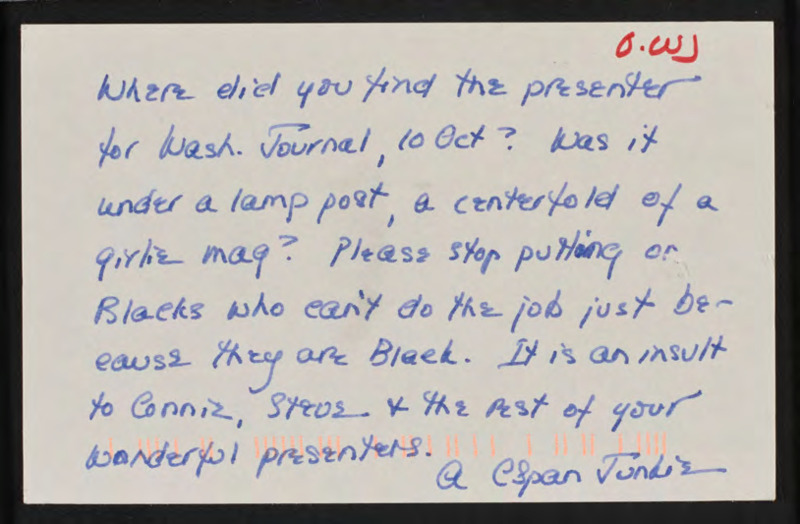 O.WJ
Where did you find the presenter
for Wash. Journal, 10 Oct? Was it
under a lamp post, a centerfold of a
girlie mag? Please stop putting on
Blacks who can't do the job just be-
cause they are Black. It is an insult
to Connie, Steve & the rest of your
wonderful presenters.
A CSpan Junkie